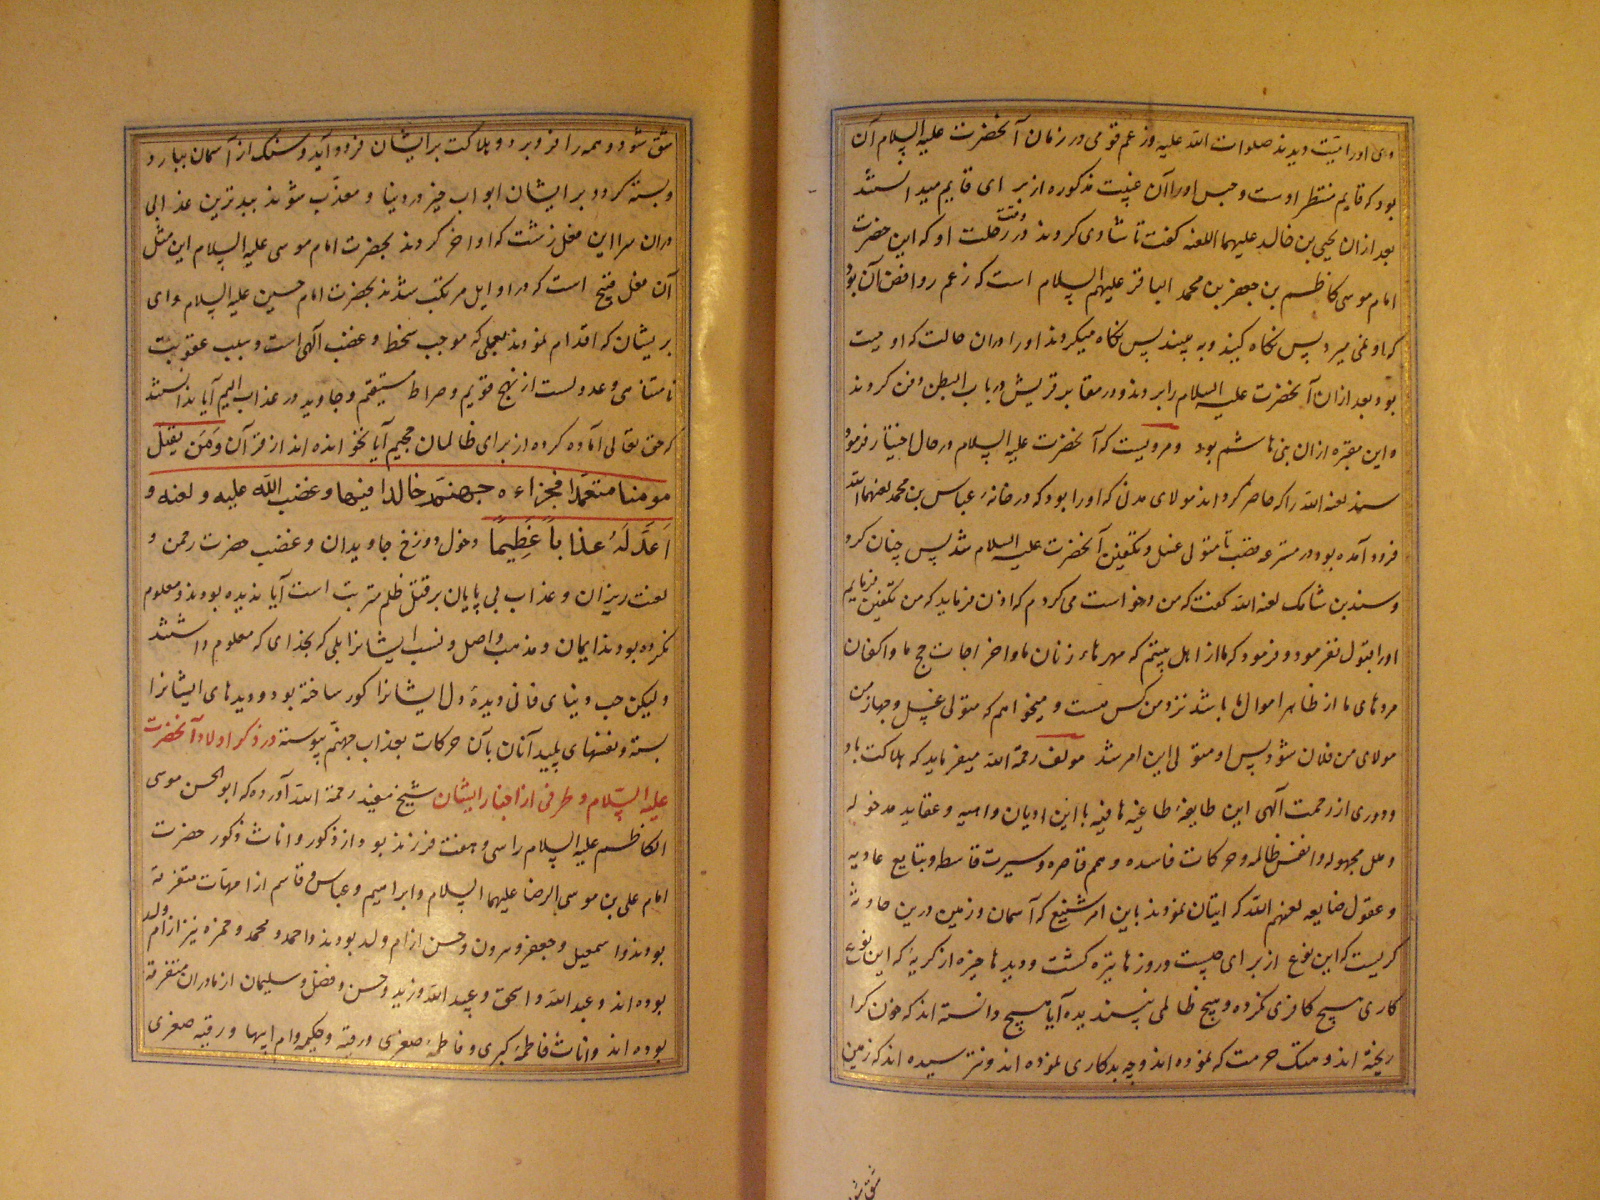 وی اورا میت دیدند صلوات الله علیه وزعم قومی در زمان آنحضرت علیه السلام آن
بود که قایم منتظر اوست و حبس اورا آن غیبت مذکوره از برای قایم میدانستند
بعد ازان یحیی بن خالد علیهما اللعنه کفت تا شادی کردند در وقت رحلت او که این حضرت
امام موسی کاظم بن جعفر بن محمد الباقر علیهم السلام است که زعم روافض آن بود
که او نمی میرد پس نکاه کنید و به بینید پس نکاه میکردند اورا دران حالت که او میت
بود بعد ازان آنحضرت علیه السلام را بردند و در مقابر قریش در باب البطن دفن کردند
و این مقبره ازان بنی هاشم بود و مرویست که آنحضرت علیه السلام در حال احتضار فرمود
سند لعنه الله را که حاضر کرداند مولای مدنی که اورا بود که در خانه عباس بن محمد لعنهما الله
فرود آمده بود در مشرعه قصب تا متولی غسل و تکفین آنحضرت علیه السلام شد پس چنان کرد
و سند بن شاهک لعنه الله کفت که من درخواست می کردم که اذن فرماید که من تکفین نمایم
اورا قبول نفرمود و فرمود که ما از اهل بیتیم که مهرهاء زنان ما و اخراجات حج ما و اکفان
مردهای ما از ظاهر اموال ما باشد نزد من کفن هست و میخواهم که متولی غسل و جهاز من
مولای من فلان شود پس او متولی این امر شد مولف رحمة الله میفرماید که هلاکت باد
و دوری از رحمت آلهی این طایفهٔ طاغیه باغیه با این ادیان واهیه و عقاید مدخوله
و علل مجهوله و انفس ظالمه و حرکات فاسده و همم قاصره و سیرت قاسطه و بتایع عادیه
و عقول ضایعه لعنهم الله که اتیان نمودند باین امر شنیع که آسمان و زمین درین حادثه
کریست که این نوع از برای چیست و روزها تیره کشت و دیدها خیره از کریهٔ که این نوع
کاری هیچ کافری نکرده و هیچ ظالمی نپسندیده آیا هیچ دانسته اند که خون کرا
ریخته اند و هتک حرمت که نموده اند و چه بدکاری نموده اند و نترسیده اند که زمین
شق شود
شق شود و همه را فرو برد و هلاکت بر ایشان فرود آید و سنک از آسمان ببارد
و بسته کردد بر ایشان ابواب خیر در دنیا و معذّب شوند ببدترین عذابی
دران سرا این فعل زشت که اواخر کردند بحضرت امام موسی علیه السلام این مثل
آن فعل قبیح است که در اوایل مرتکب شدند بحضرت امام حسین علیه السلام وای
بریشان که اقدام نمودند بعملی که موجب سخط و غضب آلهی است و سبب عقوبت
نامتناهی و عدولست از نهج قویم و صراط مستقیم و جاوید در عذاب الیم آیا ندانستند
که حق تعالی آماده کرده از برای ظالمان جحیم آیا نخوانده اند از قرآن وَمَن یقتل
مومنا متعمدا فجزاءه جهنم خالدا فیها وغضب الله علیه ولعنه و
اَعَدَّ لَهُ عذاباً عَظِیماً دخول دوزخ جاویدان و غضب حضرت رحمن و
لعنت یزدان و عذاب بی پایان بر قتل ظلم مترتبست است آیا ندیده بودند و معلوم
نکرده بودند ایمان و مذهب و اصل و نسب ایشانرا بلی که بخدای که معلوم داشتند
و لیکن حب دنیای فانی دیدهٔ دل ایشانرا کور ساخته بود و دیدهای ایشانرا
بسته و نفسهای پلید آنان بآن حرکات بعذاب جهنم پیوسته در ذکر اولاد آنحضرت
علیه السّلام و طرفی از اخبار ایشان شیخ مفید رحمة الله آورده که ابو الحسن موسی
الکاظم علیه السلام را سی و هفت فرزند بود از ذکور و اناث ذکور حضرت
امام علی بن موسی الرضا علیهما السلام و ابراهیم و عباس و قاسم از امهات متفرقه
بودند و اسمعیل و جعفر و هرون و حسن از ام ولد بودند و احمد و محمد و حمزه نیز از ام ولد
بوده اند و عبد الله و اسحق و عبید الله و زید و حسن و فضل و سلیمان از مادران متفرقه
بوده اند و اناث فاطمهٔ کبری و فاطمهٔ صغری و رقیه و حکیمه و ام ابیها و رقیه صغری